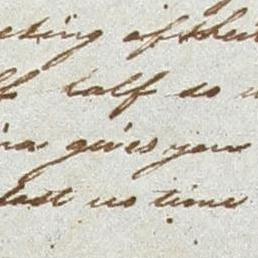 eting of their
half so
gives you
last no time